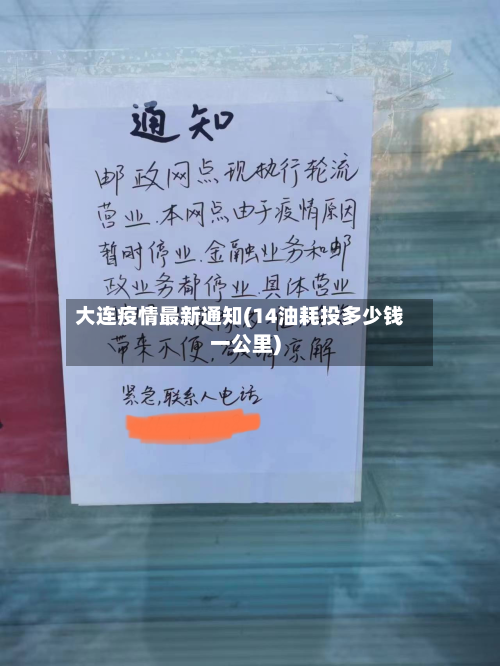 通知
邮政网点现执行轮流
营业.本网点由于疫情原因
暂时停业.金融业务和邮
政业务都停业.具体营业
大连疫情最新通知(14油耗投多少钱
一公里)
带来不便,敬请谅解
紧急,联系人电话